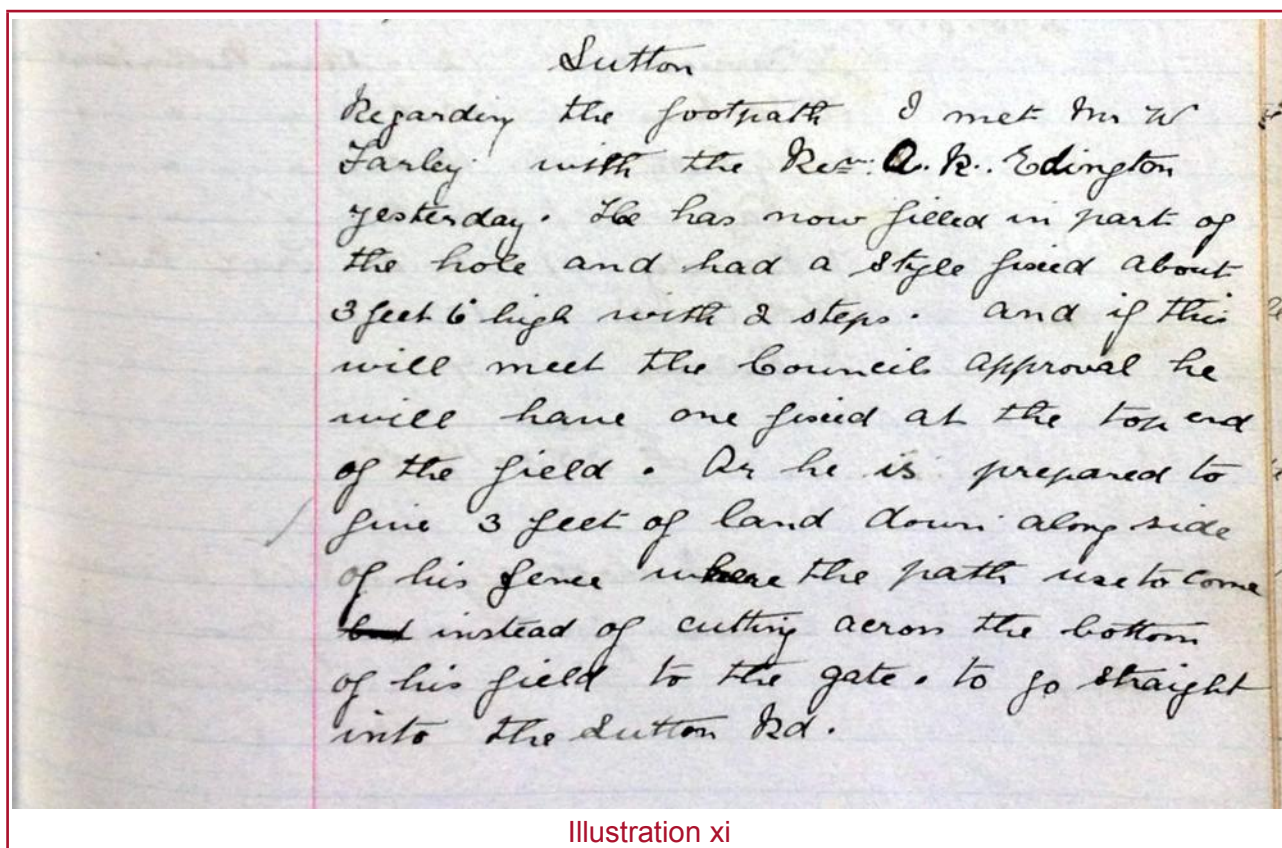 Sutton
Regarding the footpath I met Mr W
Farley with the Rev. A. R. Edington
yesterday. He has now filled in part of
the hole and had a style fixed about
3 feet 6 high with 2 steps. and if this
will meet the Councils approval he
will have one fixed at the top end
of the field. As he is prepared to
give 3 feet of land down along side
of his fence where the path use to come
instead of cutting across the bottom
of his field to the gate. to go straight
into the Sutton Rd.
Illustration xi